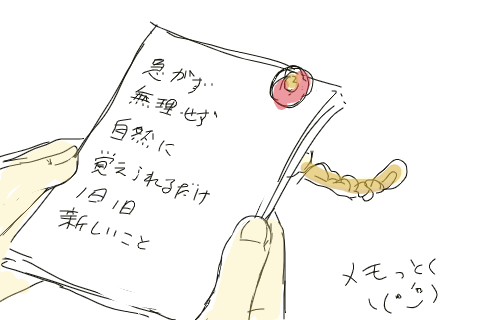 急がず
無理せず
自然に
覚えられるだけ
1日1日
新しいこと
メモっとく